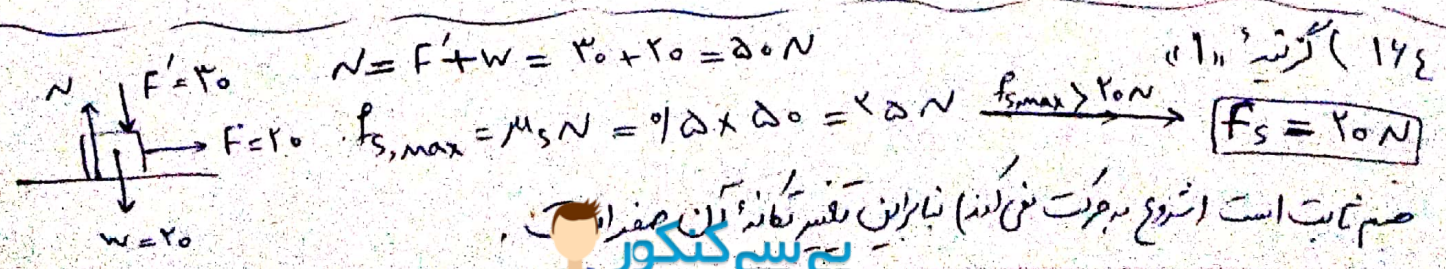 ۱۶۴) گزینهٔ «۱»
N = F' + W = ۳۰ + ۲۰ = ۵۰ N
N
F' = ۳۰
F = ۲۰
W = ۲۰
f_s,max = μ_s N = ۰/۵ × ۵۰ = ۲۵ N → f_s,max > ۲۰ N → f_s = ۲۰ N
جسم ثابت است (شروع به حرکت نمی‌کند) بنابراین تغییر تکانهٔ آن صفر است.
پی سی کنکور